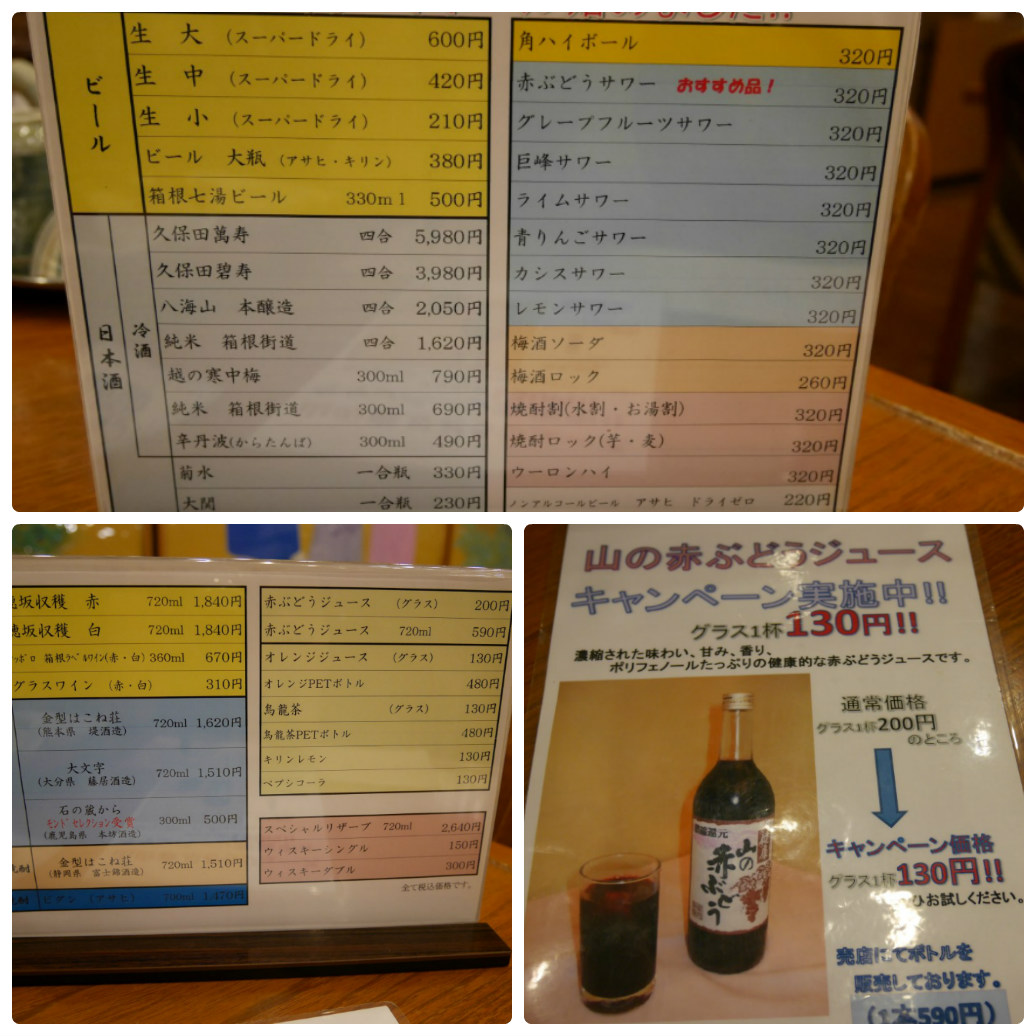 ビール
生 大 (スーパードライ) 600円
生 中 (スーパードライ) 420円
生 小 (スーパードライ) 210円
ビール 大瓶 (アサヒ・キリン) 380円
箱根七湯ビール 330ml 500円
日本酒
冷酒
久保田萬寿 四合 5,980円
久保田碧寿 四合 3,980円
八海山 本醸造 四合 2,050円
純米 箱根街道 四合 1,620円
越の寒中梅 300ml 790円
純米 箱根街道 300ml 690円
辛丹波(からたんば) 300ml 490円
菊水 一合瓶 330円
大関 一合瓶 230円
角ハイボール 320円
赤ぶどうサワー おすすめ品! 320円
グレープフルーツサワー 320円
巨峰サワー 320円
ライムサワー 320円
青りんごサワー 320円
カシスサワー 320円
レモンサワー 320円
梅酒ソーダ 320円
梅酒ロック 260円
焼酎割(水割・お湯割) 320円
焼酎ロック(芋・麦) 320円
ウーロンハイ 320円
ノンアルコールビール アサヒ ドライゼロ 220円
穂坂収穫 赤 720ml 1,840円
穂坂収穫 白 720ml 1,840円
ッポロ 箱根ラベルワイン(赤・白) 360ml 670円
グラスワイン (赤・白) 310円
金型はこね荘 720ml 1,620円
(熊本県 堤酒造)
大文字 720ml 1,510円
(大分県 藤居酒造)
石の蔵から 300ml 500円
モンドセレクション受賞
(鹿児島県 本坊酒造)
金型はこね荘 720ml 1,510円
(静岡県 富士錦酒造)
ビグン (アサヒ) 700ml 1,470円
赤ぶどうジュース (グラス) 200円
赤ぶどうジュース 720ml 590円
オレンジジュース (グラス) 130円
オレンジPETボトル 480円
烏龍茶 (グラス) 130円
烏龍茶PETボトル 480円
キリンレモン 130円
ペプシコーラ 130円
スペシャルリザーブ 720ml 2,640円
ウィスキーシングル 150円
ウィスキーダブル 300円
全て税込価格です。
山の赤ぶどうジュース
キャンペーン実施中!!
グラス1杯130円!!
濃縮された味わい、甘み、香り、
ポリフェノールたっぷりの健康的な赤ぶどうジュースです。
通常価格
グラス1杯200円
のところ
キャンペーン価格
グラス1杯130円!!
ひお試しください。
売店にてボトルを
販売しております。
(1本590円)
山の
赤ぶどう